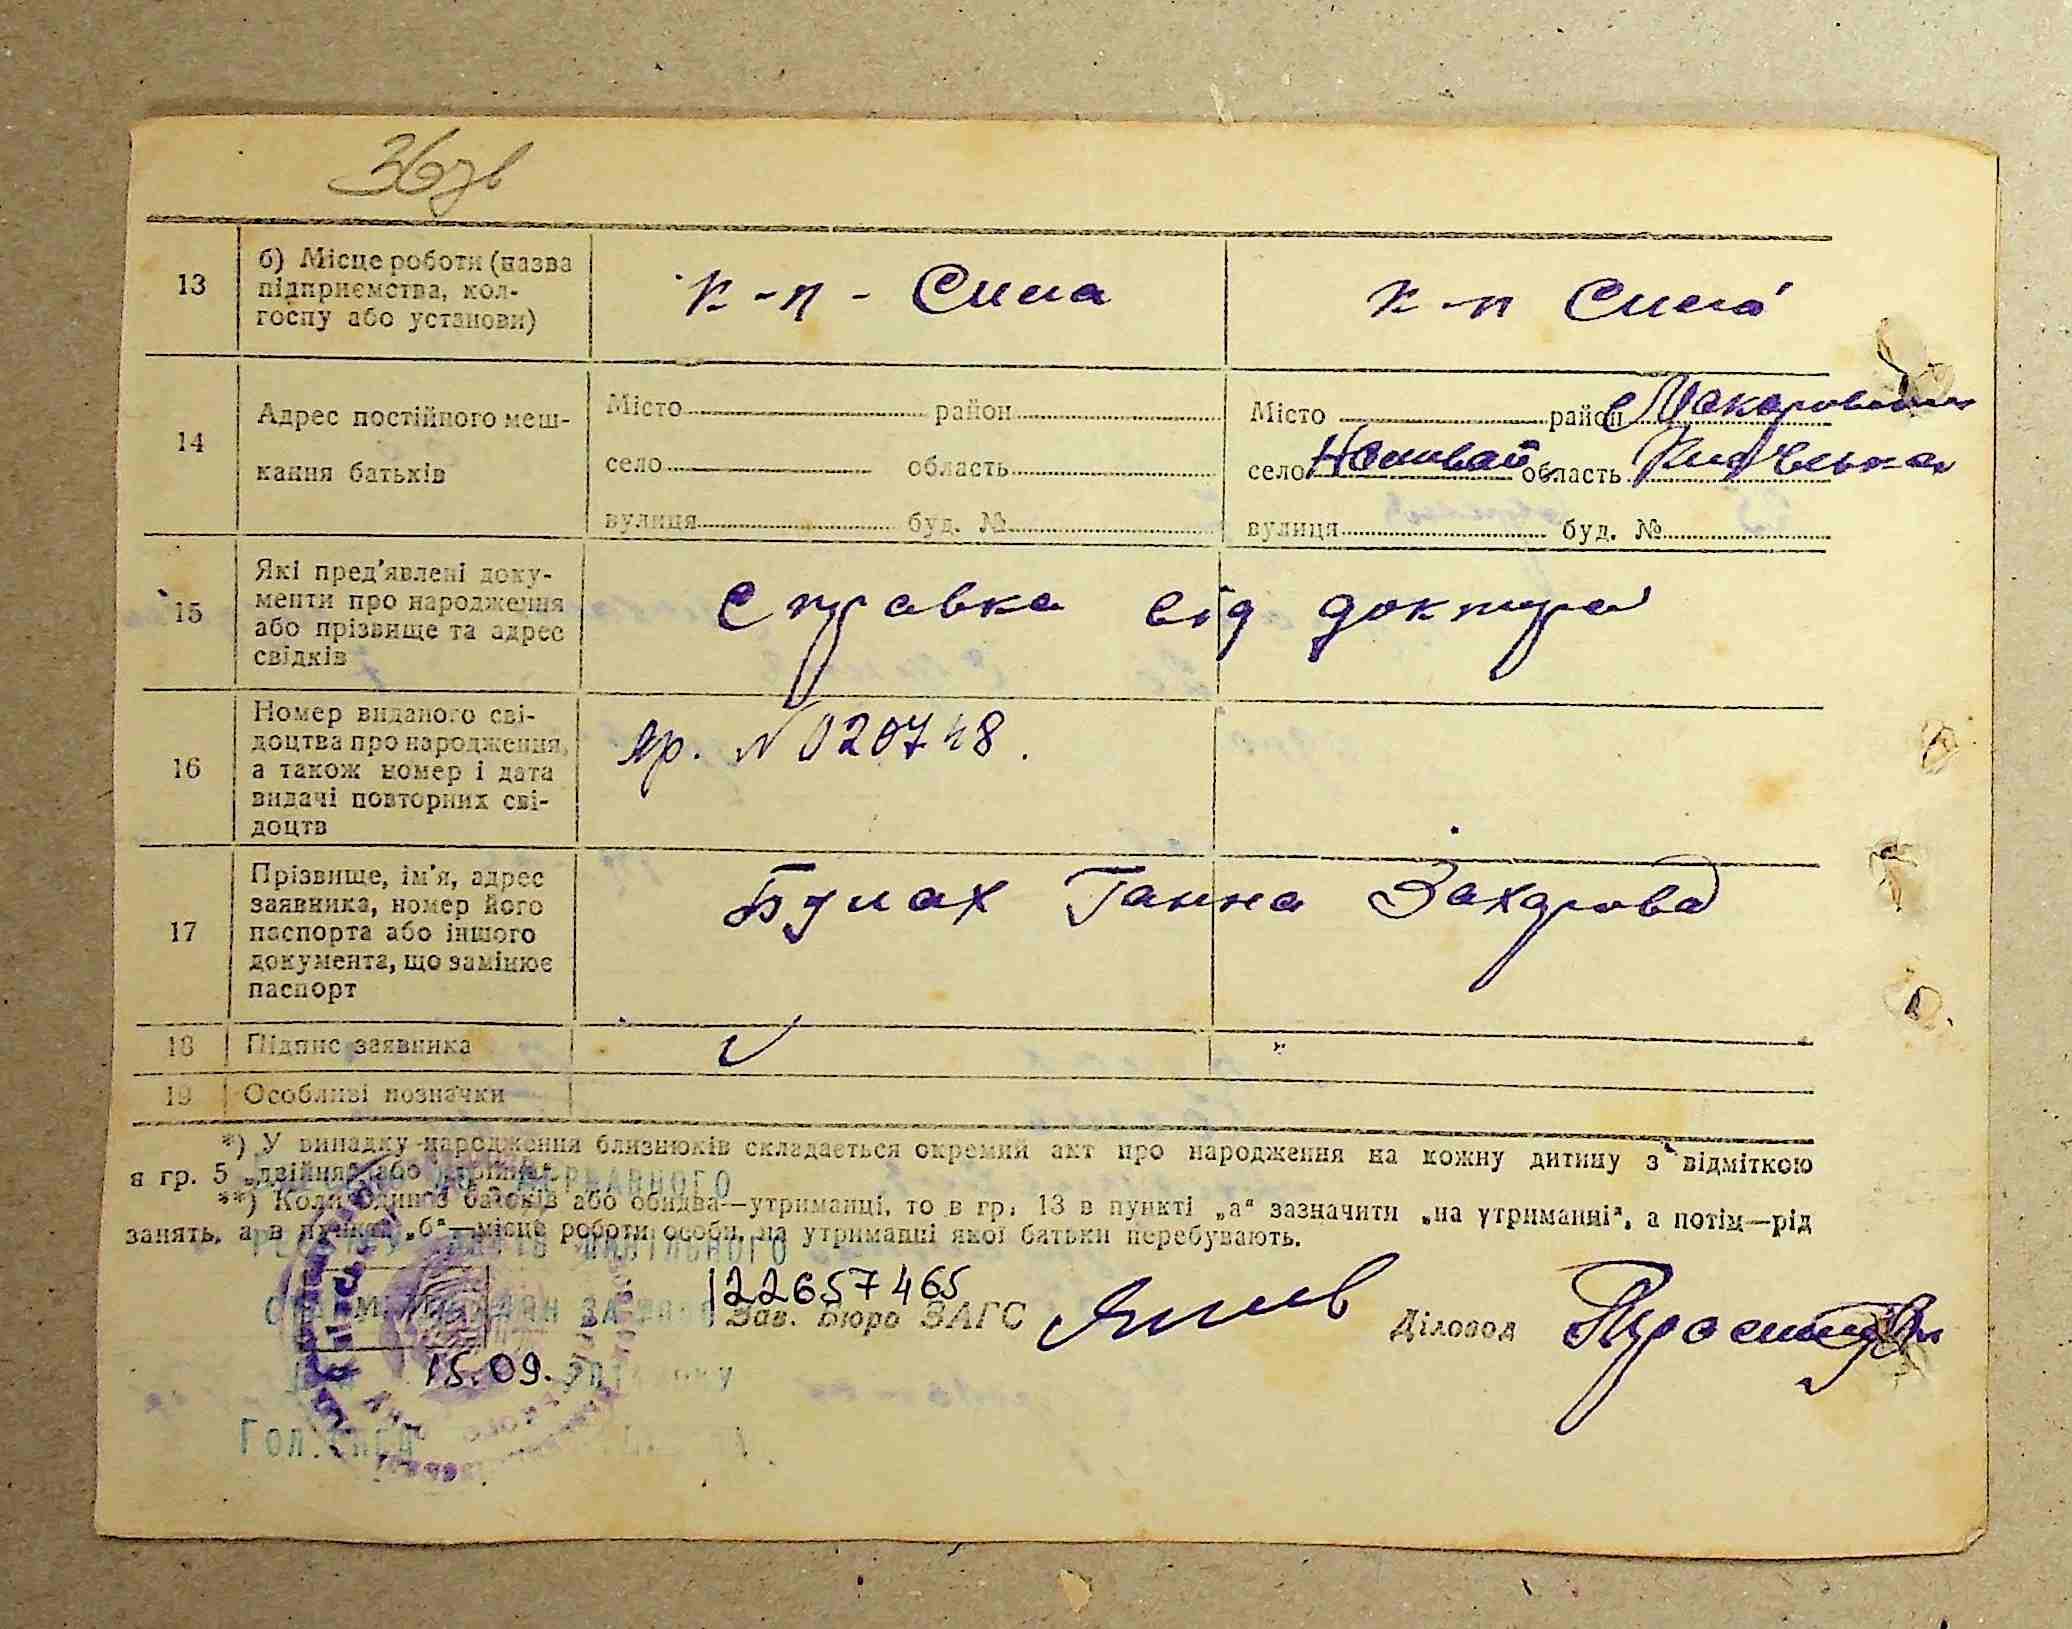 367в
13
б) Місце роботи (назва
підприємства, кол-
госпу або установи)
к-п - Сила
к-п Сила
14
Адрес постійного меш-
кання батьків
Місто район
село область
вулиця буд. №
Місто район Макаровський
село область Київська
вулиця буд. №
15
Які пред'явлені доку-
менти про народження
або прізвище та адрес
свідків
Справка від доктора
16
Номер виданого сві-
доцтва про народження,
а також номер і дата
видачі повторних сві-
доцтв
яр. № 020748.
17
Прізвище, ім'я, адрес
заявника, номер його
паспорта або іншого
документа, що замінює
паспорт
Булах Ганна Захарова
18
Підпис заявника
19
Особливі позначки
*) У випадку народження близнюків складається окремий акт про народження на кожну дитину з відміткою
в гр. 5 „двійня" або „трійня".
**) Коли один з батьків або обидва—утриманці, то в гр. 13 в пункті „а" зазначити „на утриманні", а потім—рід
занять, а в пункті „б"—місце роботи особи, на утриманні якої батьки перебувають.
122657465
Зав. Бюро ЗАГС
Діловод
15.09.